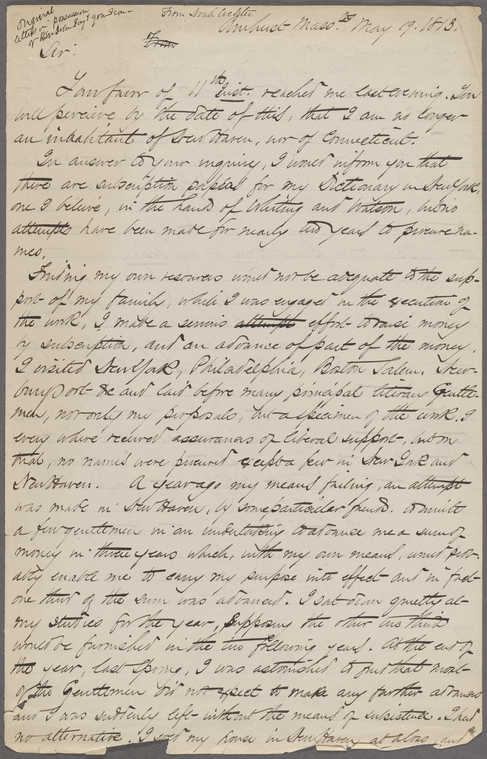 original
letter in possession
of Hon John Jay's grandson
From Noah Webster
Amherst Mass.ts May 19. 1813.
From
Sir,
Your favor of 11th Inst. reached me last evening. You
will perceive by the date of this, that I am no longer
an inhabitant of New Haven, nor of Connecticut.
In answer to your inquiry, I would inform you that
there are subscription papers for my Dictionary in New York,
one I believe, in the hands of Whiting and Watson, but no
attempts have been made for nearly two years to procure na-
mes.
Finding my own resources would not be adequate to the sup-
port of my family, while I was engaged in the execution of
the work, I made a serious attempt effort to raise money
by subscription, and an advance of part of the money.
I visited New York, Philadelphia, Boston Salem, New-
buryport &c and laid before many principal literary Gentle-
men, not only my proposals, but a specimen of the work. I
every where received assurances of liberal support, but on
trial, no names were procured except a few in New York and
New Haven. A year ago my means failing, an attempt
was made in New Haven, by some particular friends to unite
a few gentlemen in an undertaking to advance me a sum of
money in three years which, with my own means, would prob-
ably enable me to carry my purpose into effect and in fact
one third of the sum was advanced. I sat down quietly at
my studies for the year, supposing the other two thirds
would be furnished in the two following years. At the end of
the year, last Spring, I was astonished to find that most
of the Gentlemen did not expect to make any further advances
and I was suddenly left without the means of subsistence. I had
no alternative. I sold my house in New Haven at a loss, and